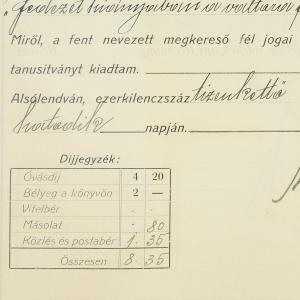 „fedezet hiányában a váltóra
Miről, a fent nevezett megkereső fél jogai
tanusítványt kiadtam.
Alsólendván, ezerkilenczszáz tizenkettő
hatodik napján.
Díjjegyzék:
Óvásdíj 4 20
Bélyeg a könyvön 2 —
Vitelbér . .
Másolat . 80
Közlés és postabér 1. 35
Összesen 8. 35